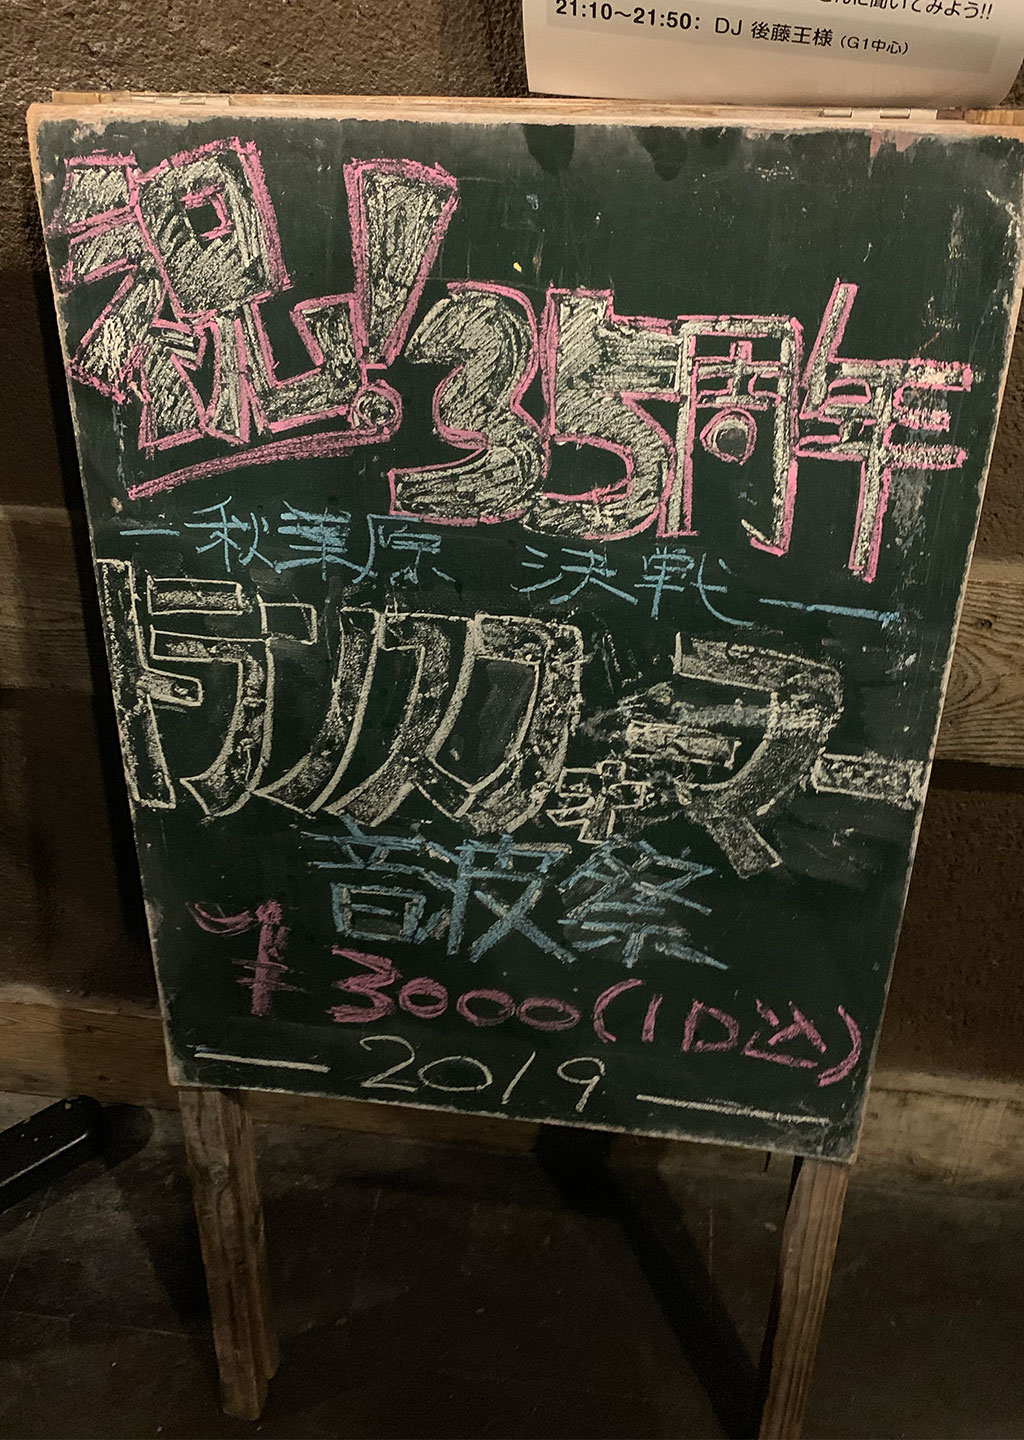 んに聞いてみよう!!
21:10〜21:50：DJ 後藤王様（G1中心）
祝！35周年
－秋葉原 決戦－
トランスフォーマー
音波祭
￥3000(1D込)
－2019－